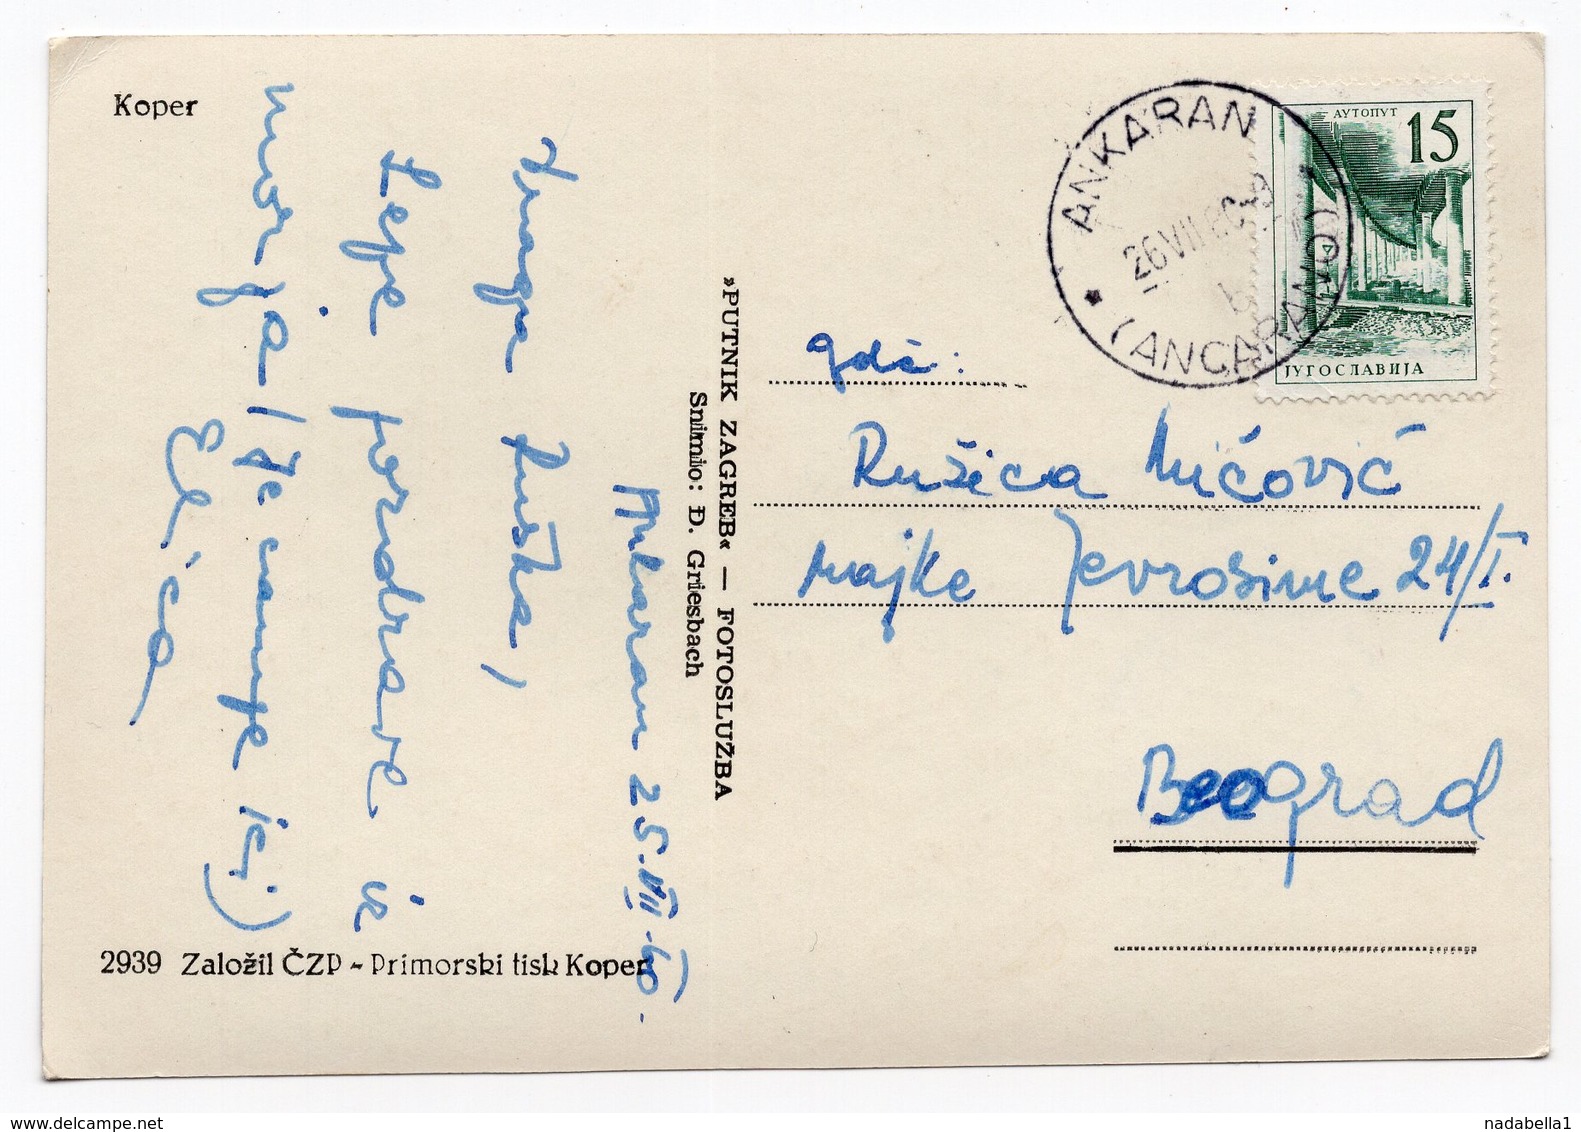 Koper
Ankaran 25.VII.60.
Draga Ruška,
Lepe pozdrave iz
morja (še sanje ici)
2939 Založil ČZP - Primorski tisk Koper
»PUTNIK ZAGREB« — FOTOSLUŽBA
Snimio: Đ. Griesbach
ANKARAN
26 VII 60
b
(ANCARANO)
АУТОПУТ
15
ЈУГОСЛАВИЈА
gđa:
Ružica Mićović
Majke Jevrosime 24/I.
Beograd
nadabella1